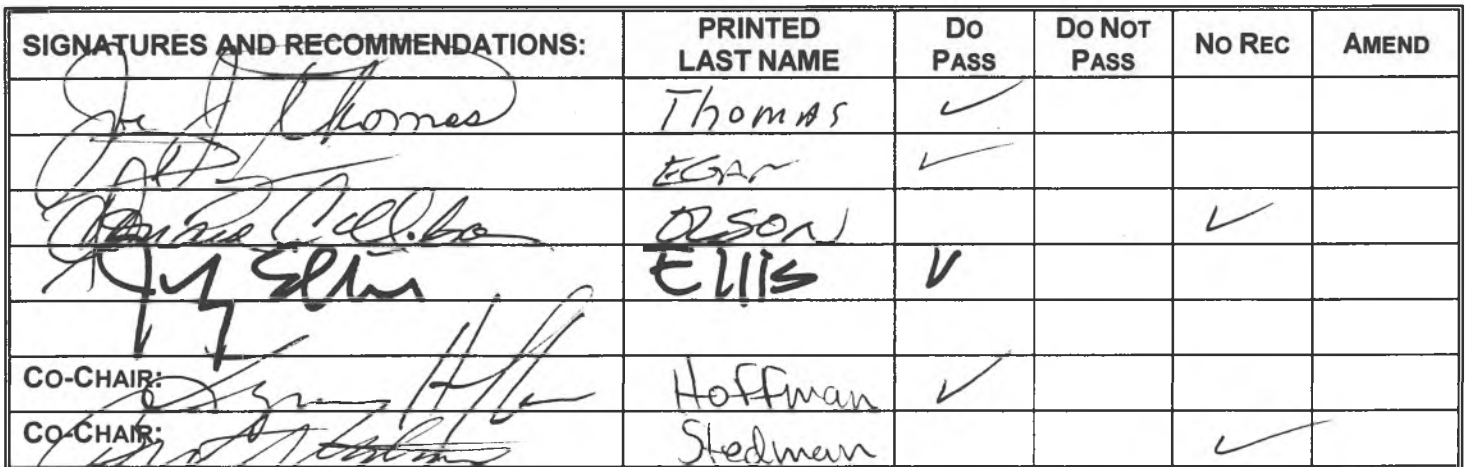 SIGNATURES AND RECOMMENDATIONS: PRINTED LAST NAME DO PASS DO NOT PASS NO REC AMEND
Joe J Thomas Thomas ✓
EGAN ✓
OLSON ✓
Ellis ✓
CO-CHAIR: Hoffman ✓
CO-CHAIR: Stedman ✓